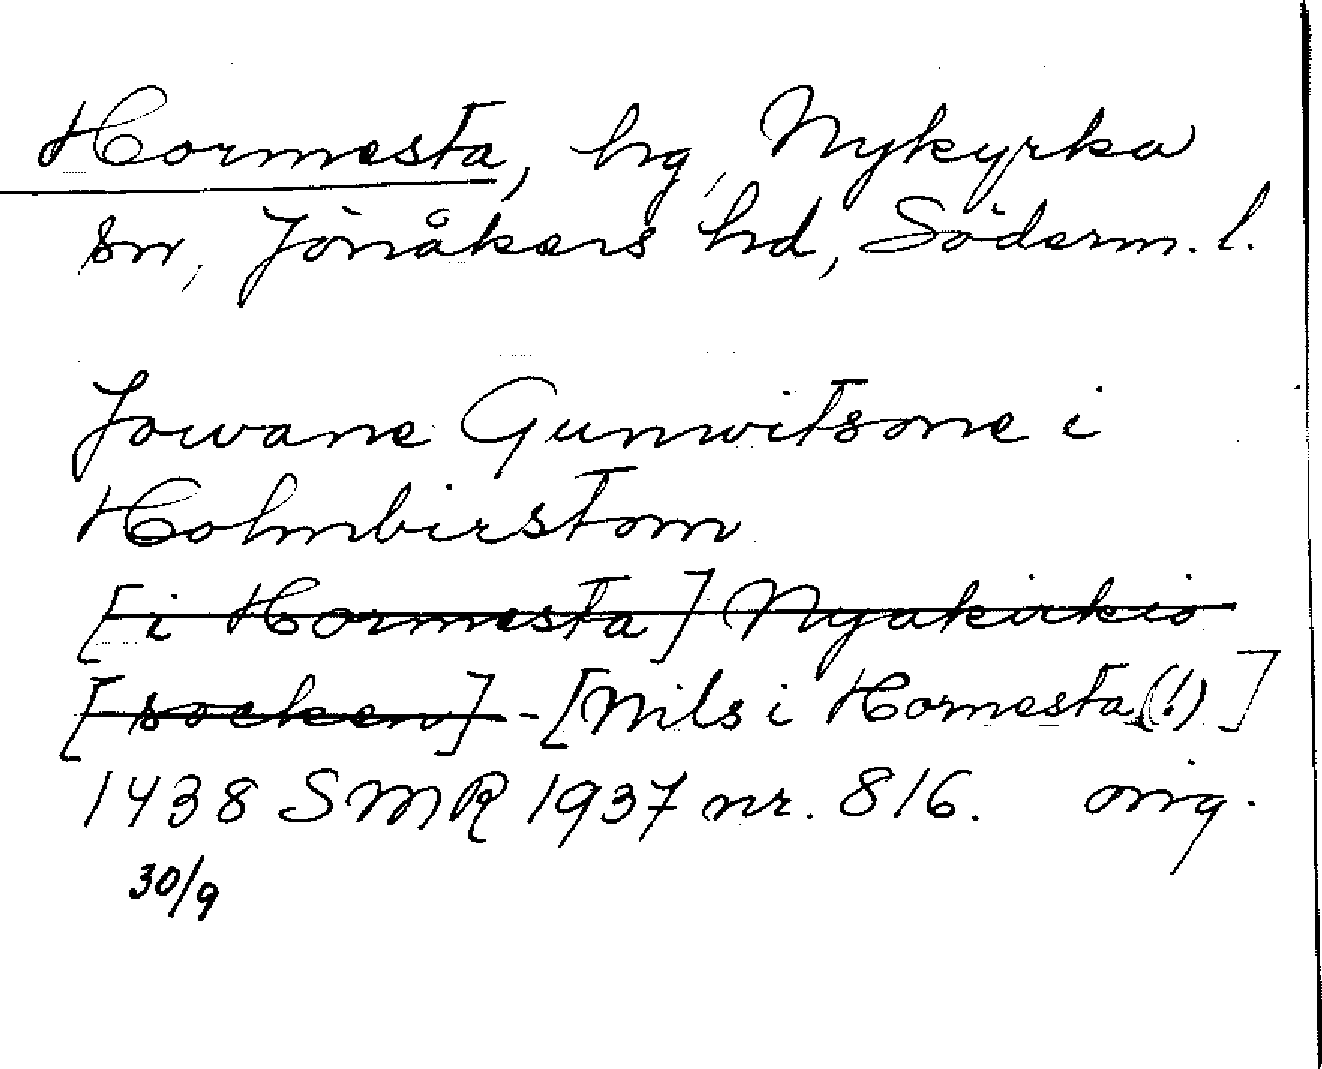 Hormesta, hg, Nykyrka
sn, Jönåkers hd, Söderm. l.
Jowane Gunwitsone i
Holmbirstom
[i Hormesta] Nyakirkio
[socken] - [Nils i Hornesta (!)]
1438 SMR 1937 nr. 816. orig.
30/9